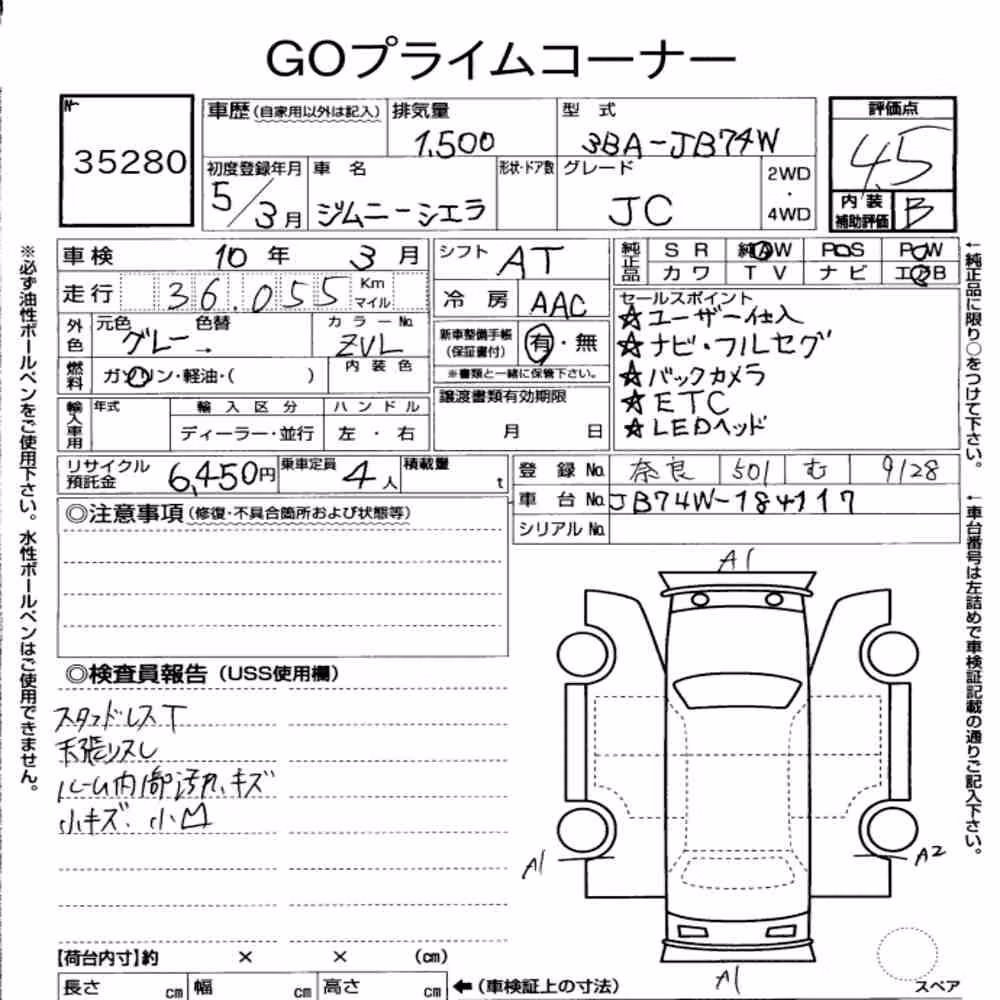 GOプライムコーナー
№
35280
車歴(自家用以外は記入)
排気量
1,500
型 式
3BA-JB74W
評価点
4.5
初度登録年月
5/3月
車 名
ジムニーシエラ
形状・ドア数
グレード
JC
2WD
・
4WD
内 装
補助評価
B
車検 10年 3月
シフト AT
純正品
SR 純AW PS PW
カワ TV ナビ エAB
走行 36,055 Km
マイル
冷房 AAC
外色
元色 色替
グレー
カラーNo.
ZVL
新車整備手帳
(保証書付)
有・無
※書類と一緒に保管下さい。
燃料
ガソリン・軽油・( )
内 装 色
譲渡書類有効期限
月 日
輸入車用
年式
輸 入 区 分
ハンドル
ディーラー・並行
左 ・ 右
セールスポイント
☆ユーザー仕入
☆ナビ・フルセグ
☆バックカメラ
☆ETC
☆LEDヘッド
リサイクル
預託金
6,450円
乗車定員 4人
積載量 t
登 録 No. 奈良 501 む 9128
車 台 No. JB74W-184117
シリアル No.
◎注意事項(修復・不具合箇所および状態等)
◎検査員報告(USS使用欄)
スタッドレスT
天張リスレ
ルーム内部汚れ、キズ
小キズ、小凹
A1
A1
A2
A1
スペア
【荷台内寸】約 × × (cm)
長さ cm 幅 cm 高さ cm ←(車検証上の寸法)
※必ず油性ボールペンをご使用下さい。水性ボールペンはご使用できません。
←純正品に限り○をつけて下さい。
←車台番号は左詰めで車検証記載の通りご記入下さい。